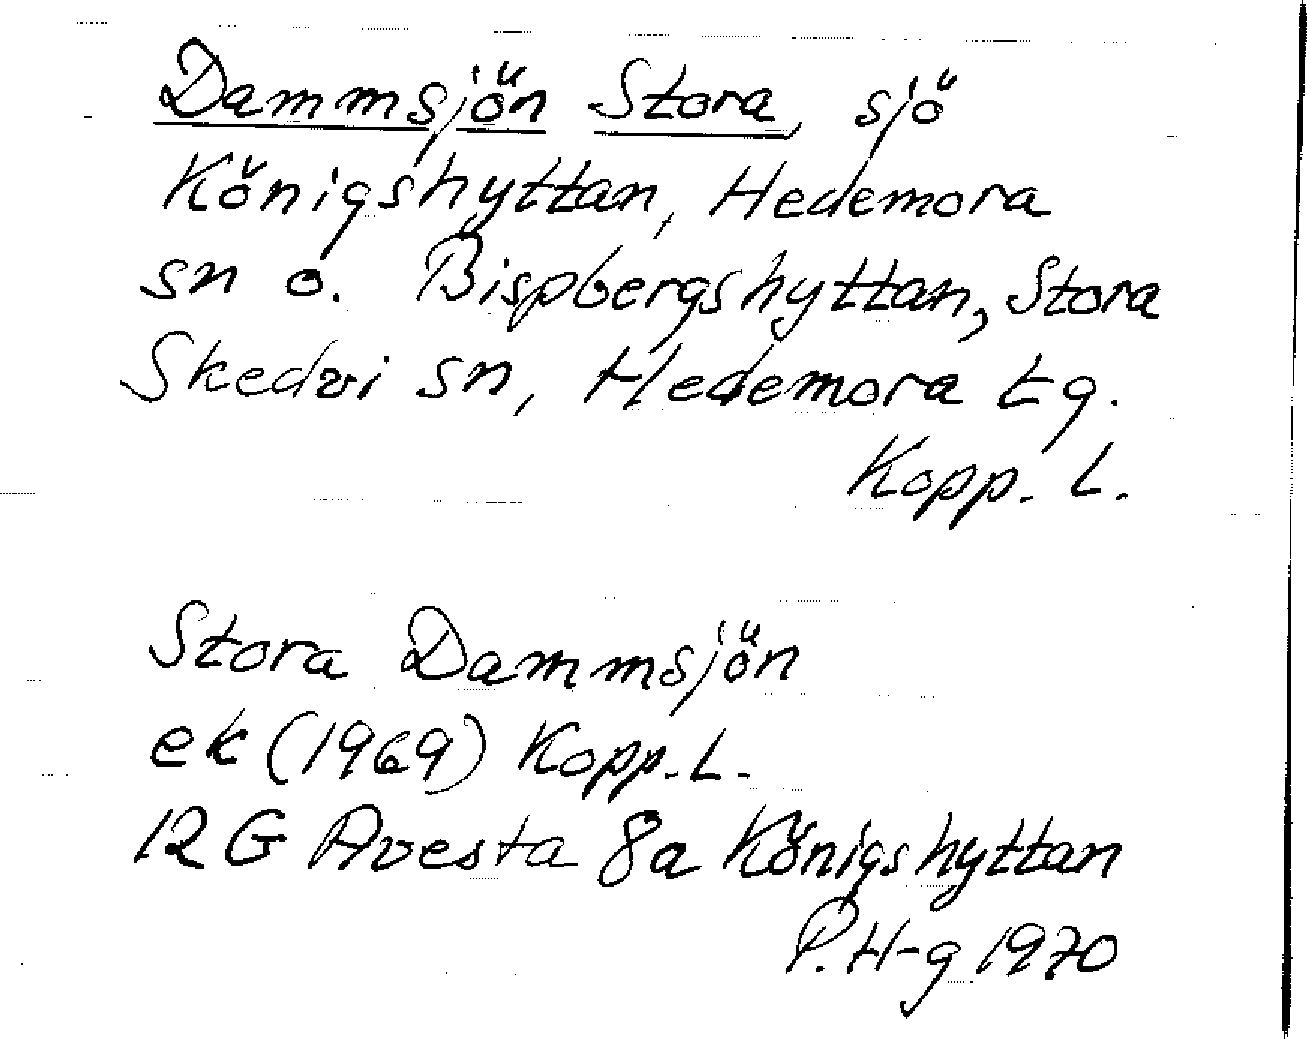 Dammsjön Stora, sjö
Königshyttan, Hedemora
sn o. Bispbergshyttan, Stora
Skedvi sn, Hedemora tg.
Kopp. L.
Stora Dammsjön
ek (1969) Kopp. L.
12 G Avesta 8a Königshyttan
P. H-g 1970